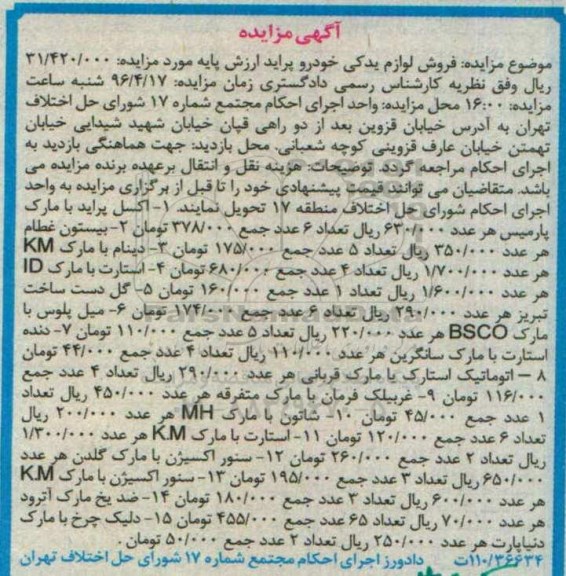 آگهی مزایده
موضوع مزایده: فروش لوازم یدکی خودرو پراید ارزش پایه مورد مزایده: ۳۱/۴۲۰/۰۰۰
ریال وفق نظریه کارشناس رسمی دادگستری زمان مزایده: ۹۶/۴/۱۷ شنبه ساعت
مزایده: ۱۶:۰۰ محل مزایده: واحد اجرای احکام مجتمع شماره ۱۷ شورای حل اختلاف
تهران به آدرس خیابان قزوین بعد از دو راهی قپان خیابان شهید شیدایی خیابان
تهمتن خیابان عارف قزوینی کوچه شعبانی. محل بازدید: جهت هماهنگی بازدید به
اجرای احکام مراجعه گردد. توضیحات: هزینه نقل و انتقال برعهده برنده مزایده می
باشد. متقاضیان می توانند قیمت پیشنهادی خود را تا قبل از برگزاری مزایده به واحد
اجرای احکام شورای حل اختلاف منطقه ۱۷ تحویل نمایند. ۱- اکسل پراید با مارک
پارمیس هر عدد ۶۳۰/۰۰۰ ریال تعداد ۶ عدد جمع ۳۷۸/۰۰۰ تومان ۲- پیستون غظام
هر عدد ۳۵۰/۰۰۰ ریال تعداد ۵ عدد جمع ۱۷۵/۰۰۰ تومان ۳- دینام با مارک KM
هر عدد ۱/۷۰۰/۰۰۰ ریال تعداد ۴ عدد جمع ۶۸۰/۰۰۰ تومان ۴- استارت با مارک ID
هر عدد ۱/۶۰۰/۰۰۰ ریال تعداد ۱ عدد جمع ۱۶۰/۰۰۰ تومان ۵- گل دست ساخت
تبریز هر عدد ۲۹۰/۰۰۰ ریال تعداد ۶ عدد جمع ۱۷۴/۰۰۰ تومان ۶- میل پلوس با
مارک BSCO هر عدد ۲۲۰/۰۰۰ ریال تعداد ۵ عدد جمع ۱۱۰/۰۰۰ تومان ۷- دنده
استارت با مارک سانگرین هر عدد ۱۱۰/۰۰۰ ریال تعداد ۴ عدد جمع ۴۴/۰۰۰ تومان
۸ – اتوماتیک استارک با مارک قربانی هر عدد ۲۹۰/۰۰۰ ریال تعداد ۴ عدد جمع
۱۱۶/۰۰۰ تومان ۹- غربیلک فرمان با مارک متفرقه هر عدد ۴۵۰/۰۰۰ ریال تعداد
۱ عدد جمع ۴۵/۰۰۰ تومان ۱۰- شاتون با مارک MH هر عدد ۲۰۰/۰۰۰ ریال
تعداد ۶ عدد جمع ۱۲۰/۰۰۰ تومان ۱۱- استارت با مارک K.M هر عدد ۱/۳۰۰/۰۰۰
ریال تعداد ۲ عدد جمع ۲۶۰/۰۰۰ تومان ۱۲- سنور اکسیژن با مارک گلدن هر عدد
۶۵۰/۰۰۰ ریال تعداد ۳ عدد جمع ۱۹۵/۰۰۰ تومان ۱۳- سنور اکسیژن با مارک K.M
هر عدد ۶۰۰/۰۰۰ ریال تعداد ۳ عدد جمع ۱۸۰/۰۰۰ تومان ۱۴- ضد یخ مارک آترود
هر عدد ۷۰/۰۰۰ ریال تعداد ۶۵ عدد جمع ۴۵۵/۰۰۰ تومان ۱۵- دلیک چرخ با مارک
دنیاپارت هر عدد ۲۵۰/۰۰۰ ریال تعداد ۲ عدد جمع ۵۰/۰۰۰ تومان.
۱۱۰/۳۶۶۳۴ت دادورز اجرای احکام مجتمع شماره ۱۷ شورای حل اختلاف تهران